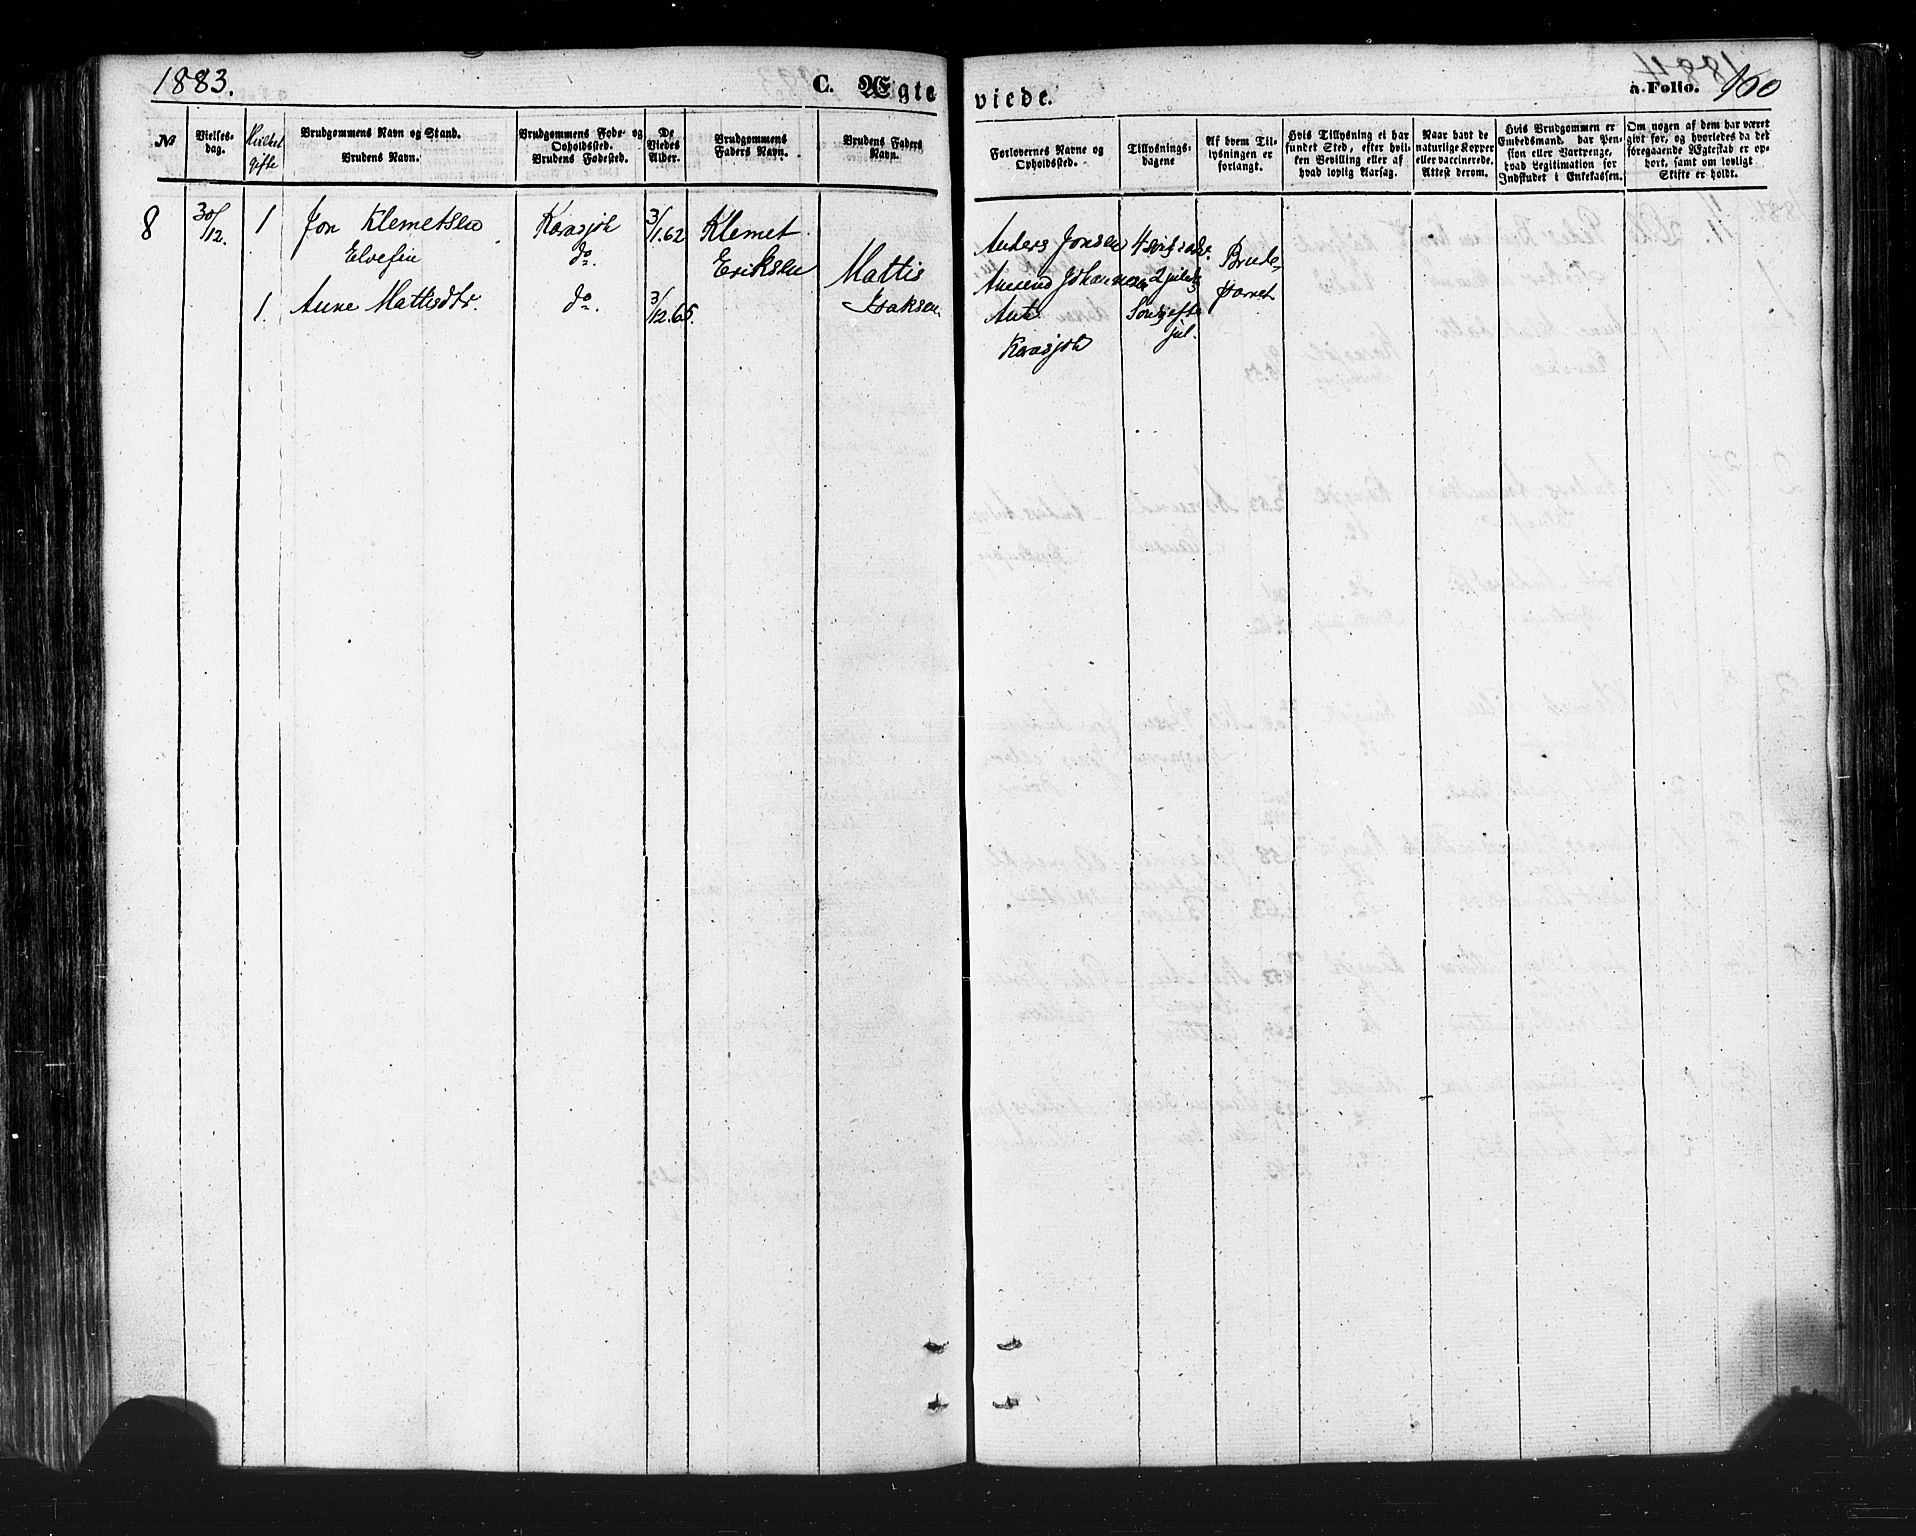 1883.
C. Ægte
viede.
à Folio. 160
№
Vielses-
dag.
Hvilket
gifte
Brudgommens Navn og Stand.
Brudens Navn.
Brudgommens Føde- og
Opholdssted.
Brudens Fødested.
De
Viedes
Alder.
Brudgommens
Faders Navn.
Brudens Faders
Navn.
Forlovernes Navne og
Opholdssted.
Tillysnings-
dagene
Af hvem Til-
lysningen er
forlangt.
Hvis Tillysning ei har
fundet Sted, efter hvil-
ken Bevilling eller af
hvad lovlig Aarsag.
Naar havt de
naturlige Kopper
eller vaccinerede.
Attest derom.
Hvis Brudgommen er
Embedsmand, har Pen-
sion eller Vartpenge,
hvad Legitimation for
Indskudet i Enkekassen.
Om nogen af dem har været
givt før, og hvorledes da det
foregaaende Ægteskab er op-
hørt, samt om lovligt
Skifte er holdt.
8
30/12.
1
Jon Klemetsen
Elvefin
Karasjok
do.
3/1.62
Klemet
Eriksen
1.
Anne Mattisdtr.
do.
3/12.65.
Mattis
Isaksen.
Anders Jonsen
Amund Johannesen
Anti
Karasjok
4 s. i adv.
2 juled.
Sønd. eft.
jul.
Brude-
parret